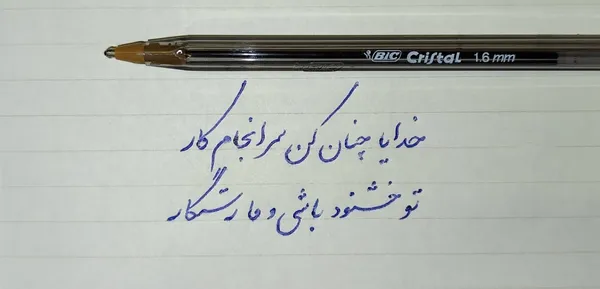 BIC Cristal 1.6 mm
خدایا چنان کن سرانجام کار
تو خشنود باشی و ما رستگار